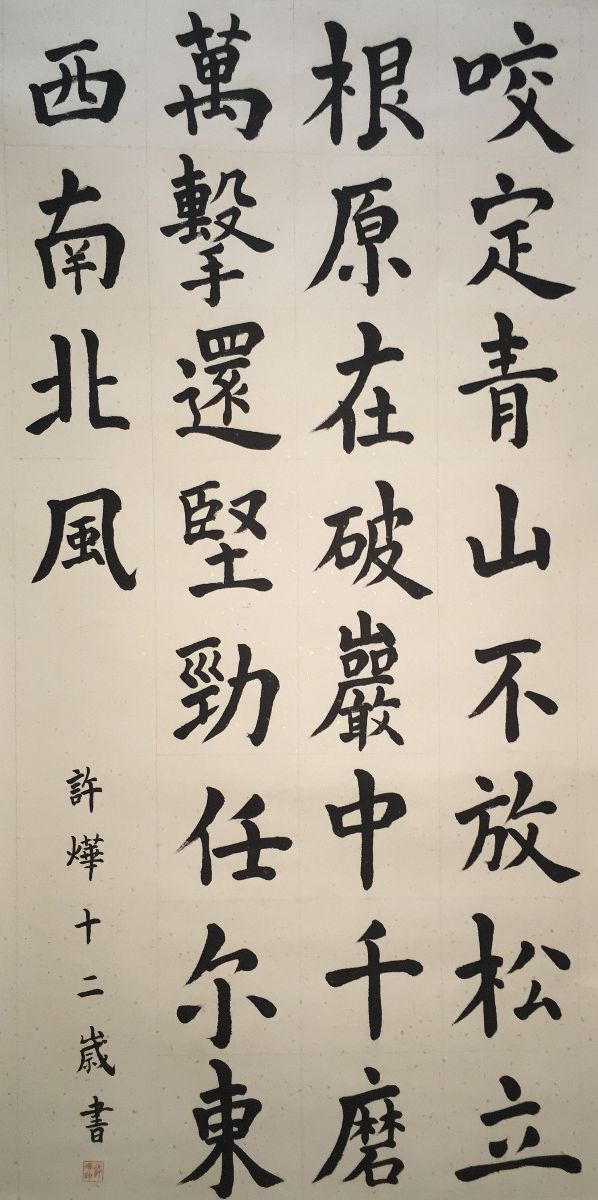 咬定青山不放松立
根原在破巖中千磨
萬擊還堅勁任尔東
西南北風
許燁十二歲書